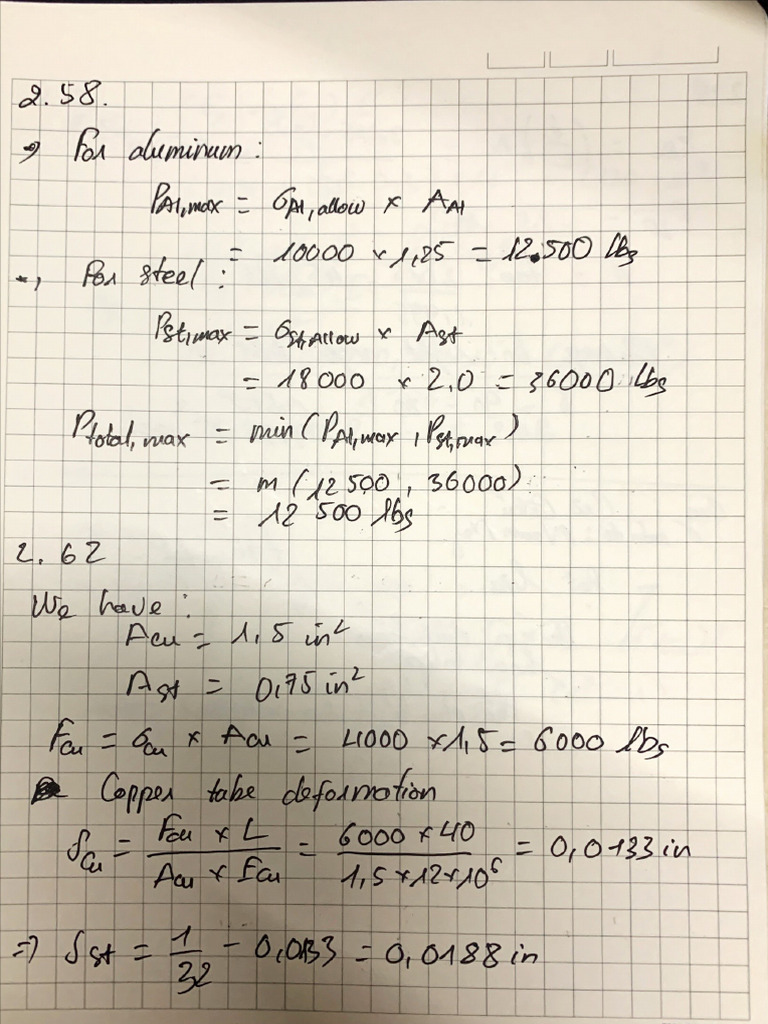 2.58.
→ For aluminum:
P_Al,max = σ_Al,allow × A_Al
= 10000 × 1,25 = 12.500 lbs
→ For steel:
P_st,max = σ_st,Allow × A_st
= 18000 × 2,0 = 36000 lbs
P_total,max = min(P_Al,max, P_st,max)
= m (12 500, 36000)
= 12 500 lbs
2.62
We have:
A_cu = 1,5 in²
A_st = 0,75 in²
F_cu = σ_cu × A_cu = 4000 × 1,5 = 6000 lbs
Copper tube deformation
δ_cu = (F_cu × L) / (A_cu × E_cu) = (6000 × 40) / (1,5 × 12 × 10⁶) = 0,0133 in
⇒ δ_st = 1/32 - 0,0133 = 0,0188 in